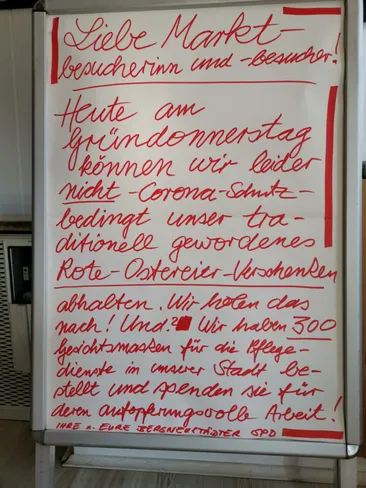 Liebe Markt-
besucherinn und -besucher!
Heute am
Gründonnerstag
können wir leider
nicht -Corona-Schutz-
bedingt unser tra-
ditionell gewordenes
Rote-Ostereier-Verschenken
abhalten. Wir holen das
nach! Und? Wir haben 300
Gesichtsmasken für die Pflege-
dienste in unserer Stadt be-
stellt und spenden sie für
deren aufopferungsvolle Arbeit!
IHRE u. EURE BERGNEUSTÄDTER SPD